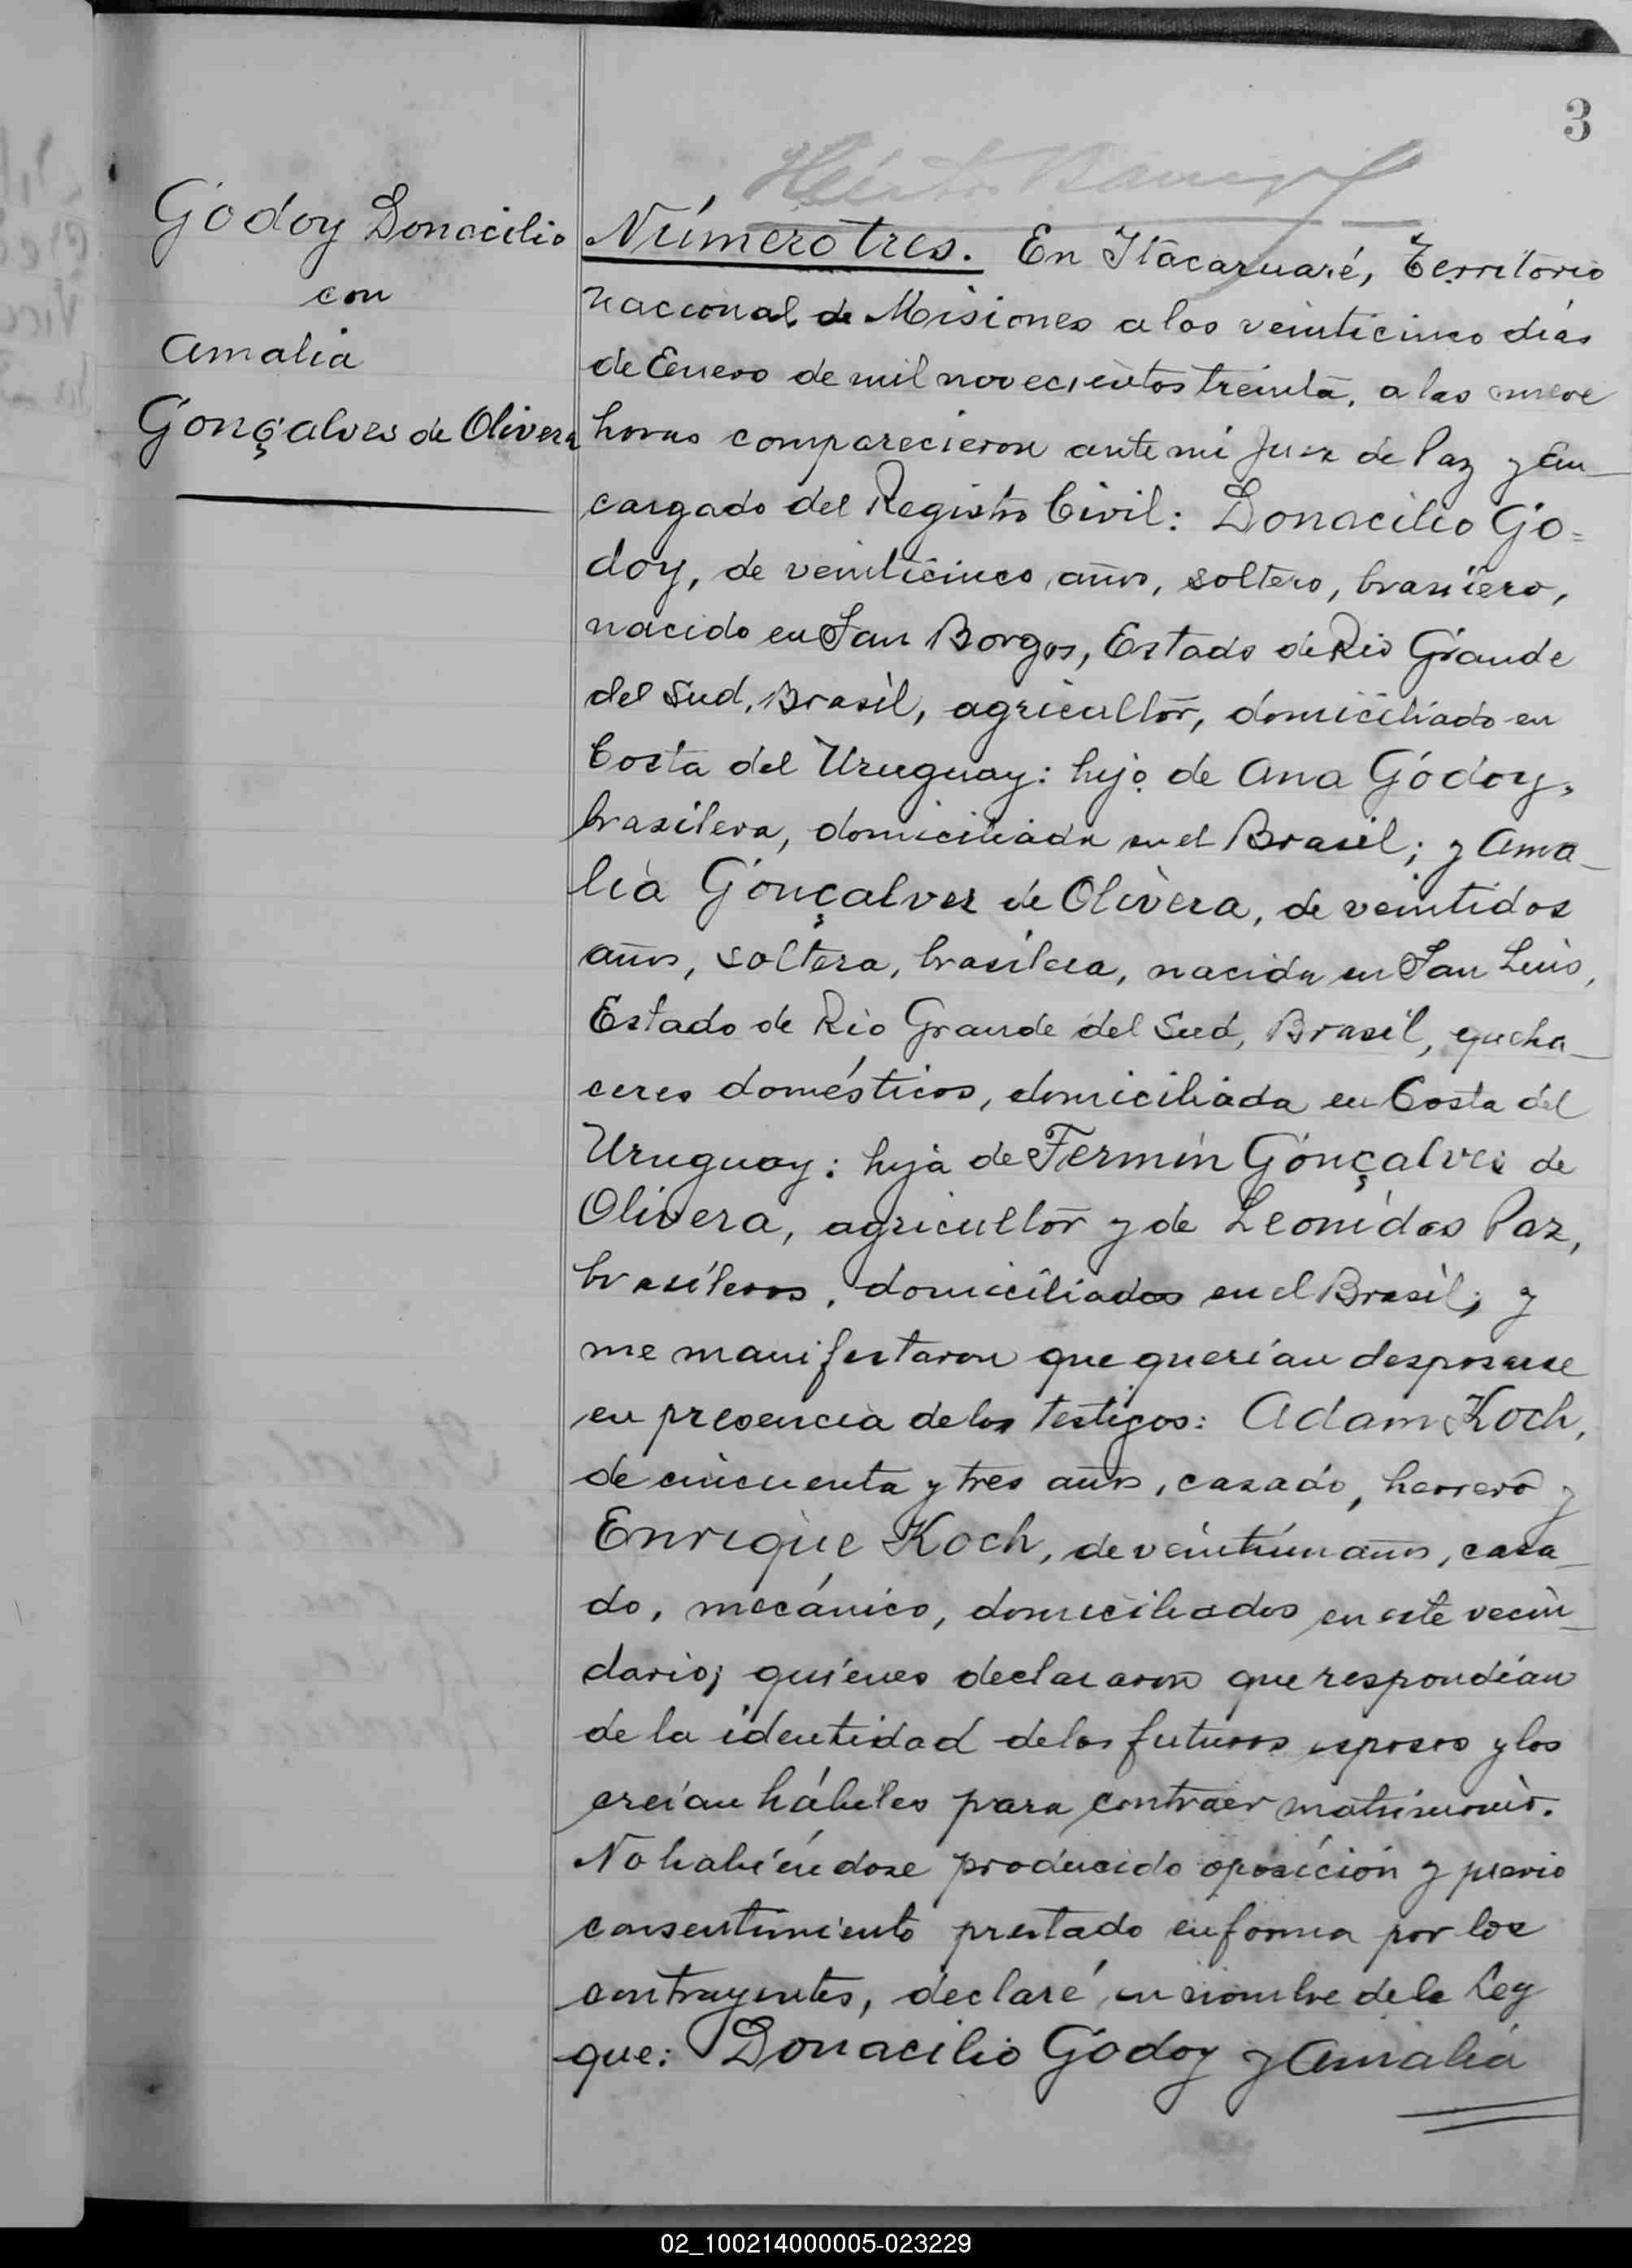 3
Godoy Donacilio
con
Amalia
Gonçalves de Olivera
Número tres. En Itacaruaré, Territorio
nacional de Misiones a los veinticinco días
de Enero de mil novecientos treinta, a las nueve
horas comparecieron ante mi Juez de Paz y En
cargado del Registro Civil: Donacilio Go=
doy, de veinticinco años, soltero, brasilero,
nacido en San Borgos, Estado de Rio Grande
del Sud, Brasil, agricultor, domiciliado en
Costa del Uruguay: hijo de Ana Godoy,
brasilera, domiciliada en el Brasil; y Ama_
lia Gonçalves de Olivera, de veintidos
años, soltera, brasilera, nacida en San Luis,
Estado de Rio Grande del Sud, Brasil, queha_
ceres domésticos, domiciliada en Costa del
Uruguay: hija de Fermin Gonçalves de
Olivera, agricultor y de Leonidas Paz,
brasileros, domiciliados en el Brasil; y
me manifestaron que querían desposarse
en presencia de los testigos: Adam Koch,
de cincuenta y tres años, casado, herrero y
Enrique Koch, de veintiún años, casa_
do, mecánico, domiciliados en este vecin_
dario; quienes declararon que respondían
de la identidad de los futuros esposos y los
creían hábiles para contraer matrimonio.
No habiéndose producido oposición y previo
consentimiento prestado en forma por los
contrayentes, declaré en nombre de la Ley
que: Donacilio Godoy y Amalia
02_100214000005-023229